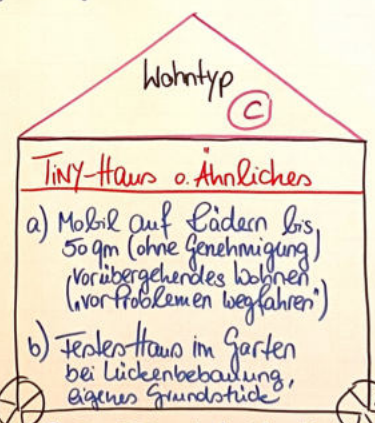 Wohntyp
C
Tiny-Haus o. Ähnliches
a) Mobil auf Rädern bis
50 qm (ohne Genehmigung)
(vorübergehendes Wohnen
("vor Problemen wegfahren")
b) Festes Haus im Garten
bei Lückenbebauung,
eigenes Grundstück